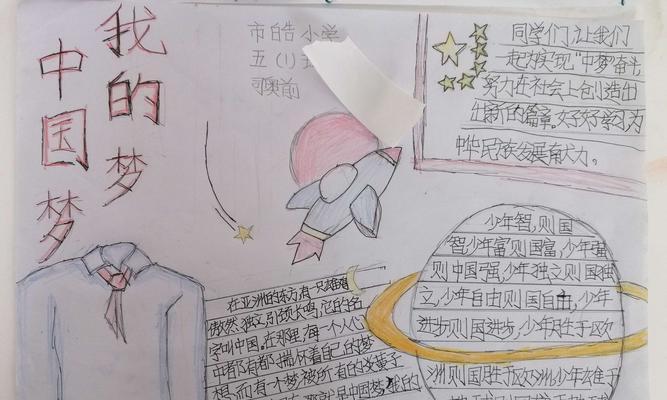 我的梦
中国梦
市皓小学
五(1)
同学们,让我们
一起为实现“中梦”奋斗
努力在社会上创造出
出新的篇章。好好学习为
中华民族发展奋力。
少年智,则国
智,少年富则国富,少年强
则中国强,少年独立则国独
立,少年自由则国自由,少年
进步则国进步,少年胜于欧
洲则国胜于欧洲,少年雄于
在亚洲的东方,有一只雄鸡
傲然独立,引颈长鸣,它的名
字叫中国。在那里,每一个人心
中都有都揣着自己的梦
想,而有个梦被所有的炎黄子
就是中国梦,我的